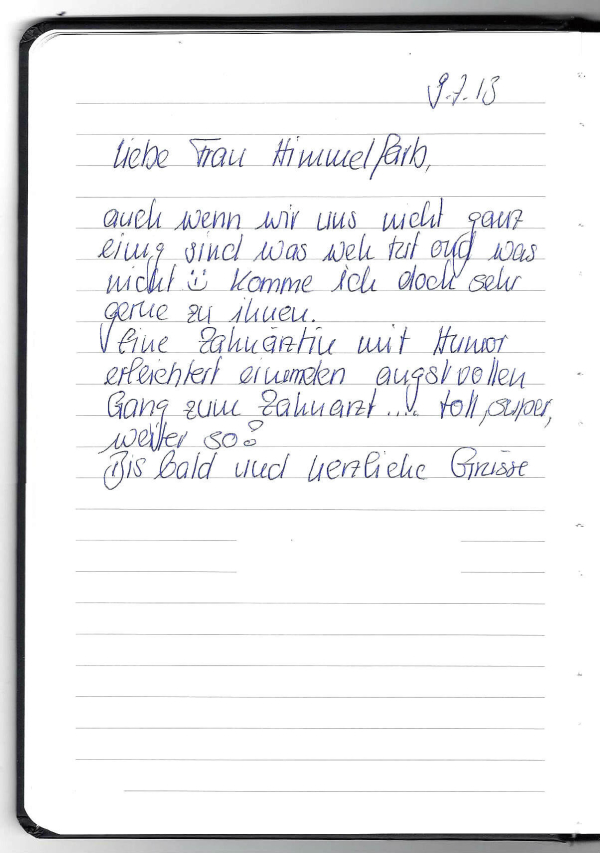 9.7.13
Liebe Frau Himmelfarb,
auch wenn wir uns nicht ganz
einig sind was weh tut und was
nicht :) komme ich doch sehr
gerne zu ihnen.
Eine Zahnärztin mit Humor
erleichtert einem den angstvollen
Gang zum Zahnarzt... toll, super,
weiter so!
Bis bald und herzliche Grüsse